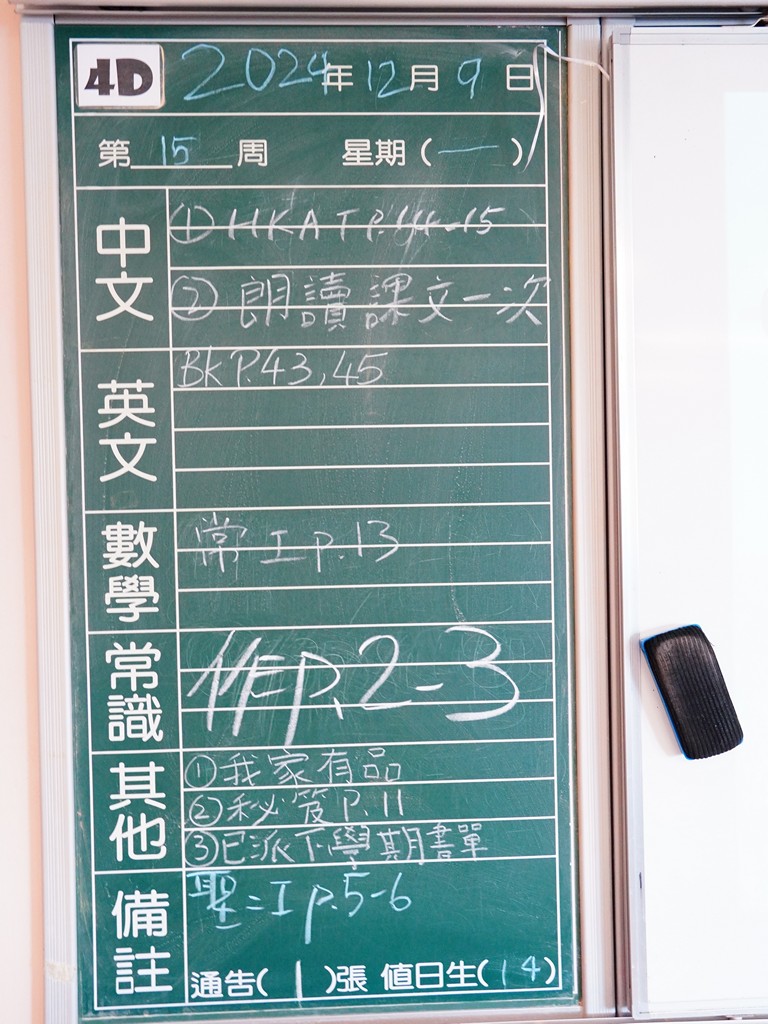 4D 2024年12月9日
第15周 星期(一)
中文
①HKAT P.14-15
②朗讀課文一次
英文
BK P.43,45
數學
常 I P.13
常識
P.2-3
其他
①我家有品
②秘笈P.11
③已派下學期書單
備註
聖=I P.5-6
通告(1)張 值日生(14)